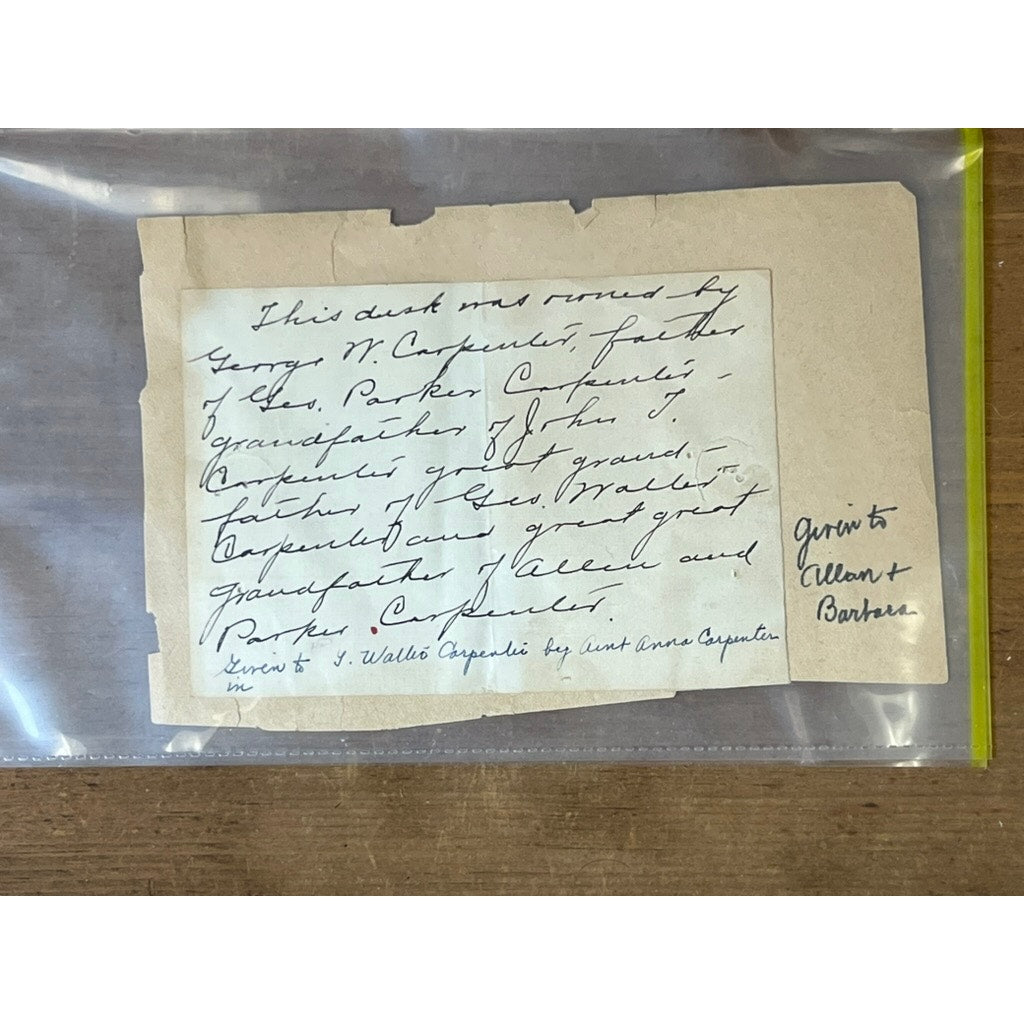 This desk was owned by
George W. Carpenter, father
of Geo. Parker Carpenter -
grandfather of John T.
Carpenter great grand -
father of Geo. Walter
Carpenter and great great
grandfather of Allen and
Parker Carpenter.
Given to G. Walter Carpenter by Aunt Anna Carpenter
in
Given to
Allan +
Barbara